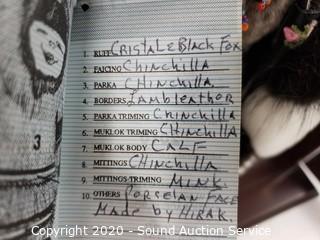 1. RUFF CRISTALE Black Fox
2. FAICING Chinchilla
3. PARKA CHINCHILLA
4. BORDERS Lambleathor
5. PARKA TRIMING Chinchilla
6. MUKLOK TRIMING CHINCHILLA
7. MUKLOK BODY CALF
8. MITTINGS Chinchilla
9. MITTINGS TRIMING MINK.
10. OTHERS PORCELAN FACE
Made by HIRAK.
3
Copyright © 2020 - Sound Auction Service